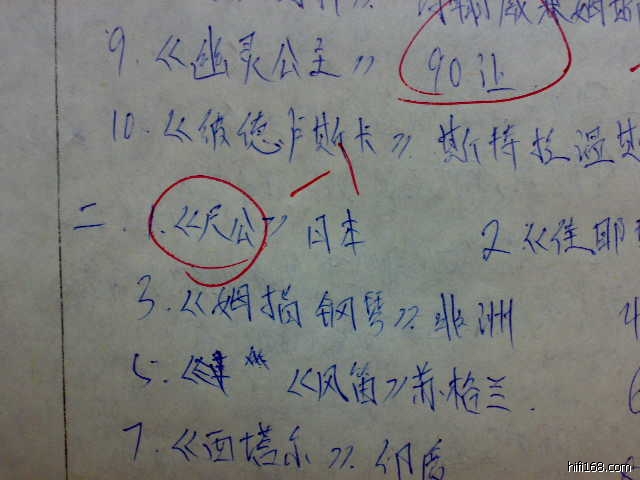 9.《幽灵公主》 90让
10.《彼德卢斯卡》 斯特拉温斯
二. 1.《尺公》 日本 2《佳耶
3.《姆指钢琴》. 非洲 4
5.《风笛》苏格兰. 6
7.《西塔尔》. 印度
hifi168.com